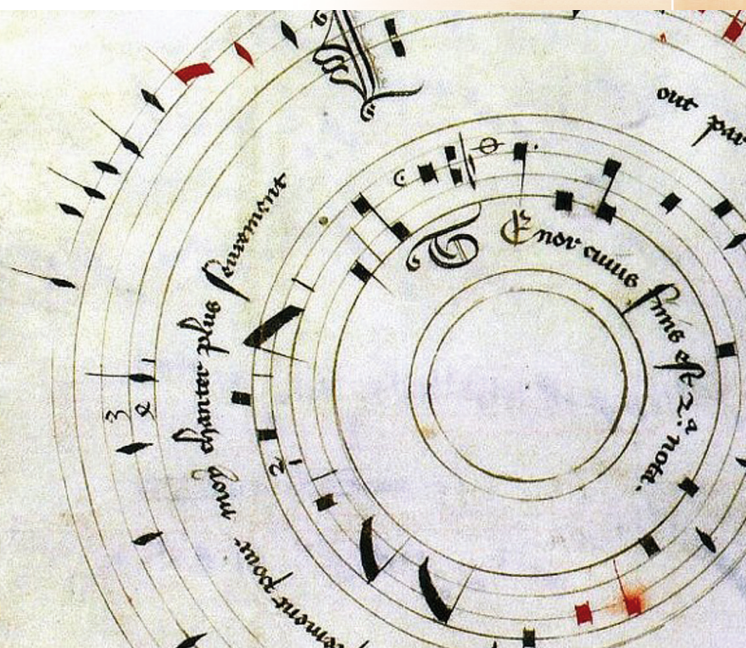 out par
Tenor cuius finis est 2ª nota.
ement pour moy chanter plus seurement
3
2
2